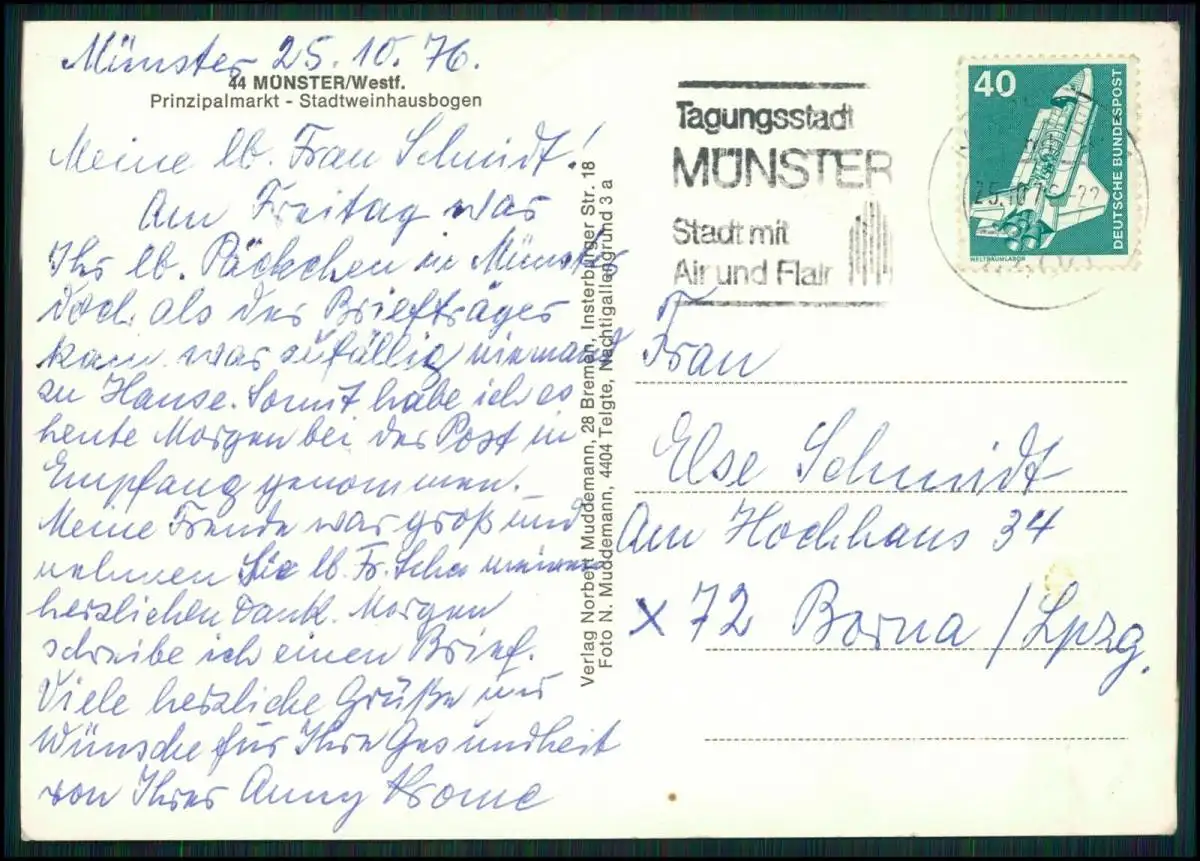 Münster 25.10.76.
44 MÜNSTER/Westf.
Prinzipalmarkt - Stadtweinhausbogen
Meine lb. Frau Schmidt!
Am Freitag war
Ihr lb. Päckchen in Münster
doch als der Briefträger
kam war zufällig niemand
zu Hause. Somit habe ich es
heute Morgen bei der Post in
Empfang genommen.
Meine Freude war groß und
nehmen Sie lb. Fr. Sch. meinen
herzlichen Dank. Morgen
schreibe ich einen Brief.
Viele herzliche Grüße und
Wünsche für Ihre Gesundheit
von Ihrer Anny Krome
Verlag Norbert Muddemann, 28 Bremen, Insterburger Str. 18
Foto N. Muddemann, 4404 Telgte, Nachtigallengrund 3 a
Tagungsstadt
MÜNSTER
Stadt mit
Air und Flair
25.10.76-22
40
DEUTSCHE BUNDESPOST
WELTRAUMLABOR
Frau
Else Schmidt
Am Hochhaus 34
x 72 Borna / Lpzg.